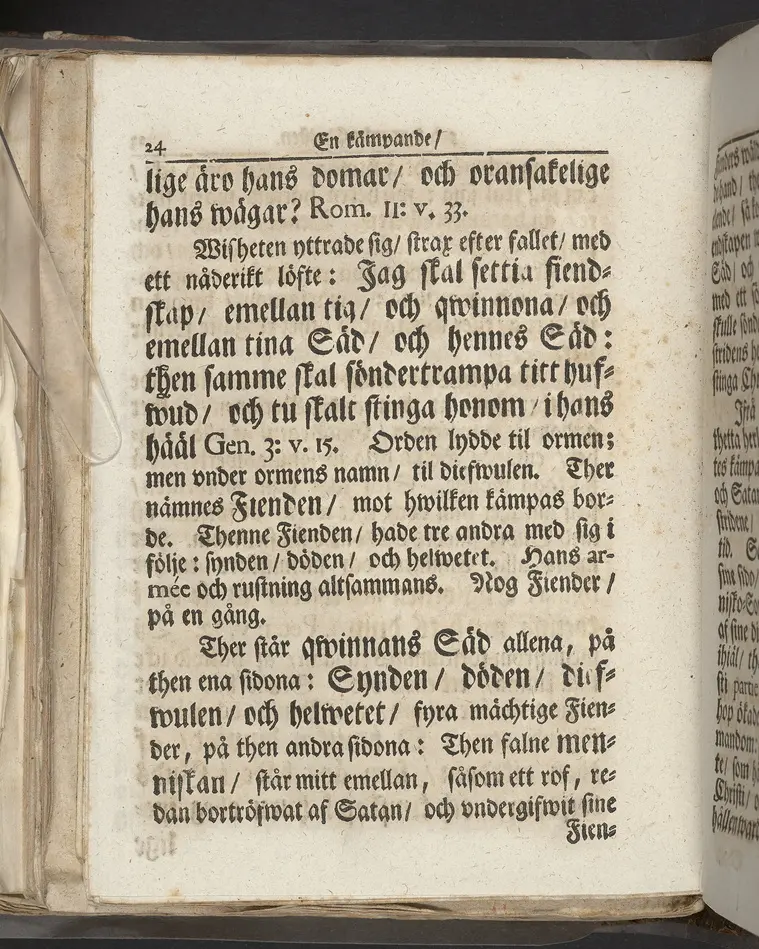 24 En kämpande/
lige äro hans domar/ och oransakelige
hans wägar? Rom. 11: v. 33.
Wisheten yttrade sig/ strax efter fallet/ med
ett nåderikt löfte: Jag skal settia fiend-
skap/ emellan tig/ och qwinnona/ och
emellan tina Säd/ och hennes Säd:
then samme skal söndertrampa titt huf-
wud/ och tu skalt stinga honom/ i hans
hääl Gen. 3: v. 15. Orden lydde til ormen;
men vnder ormens namn/ til diefwulen. Ther
nämnes Fienden/ mot hwilken kämpas bor-
de. Thenne Fienden/ hade tre andra med sig i
följe: synden/ döden/ och helwetet. Hans ar-
mée och rustning altsammans. Nog Fiender/
på en gång.
Ther står qwinnans Säd allena, på
then ena sidona: Synden/ döden/ dief-
wulen/ och helwetet/ fyra mächtige Fien-
der, på then andra sidona: Then falne men-
niskan/ står mitt emellan, såsom ett rof, re-
dan bortröfwat af Satan/ och vndergifwit sine
Fien-